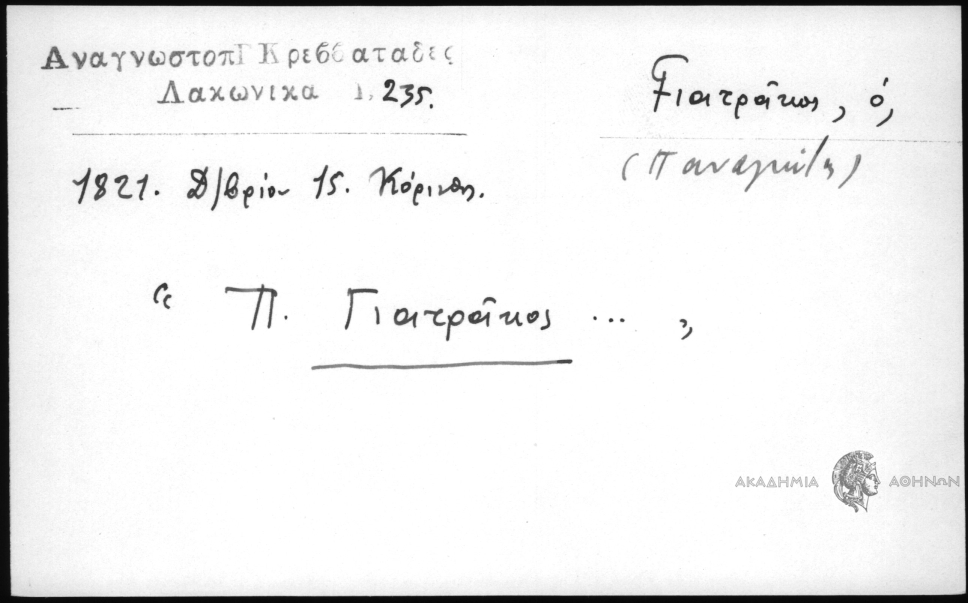 Αναγνωστοπ Γ Κρεββαταδες
Λακωνικα 1, 235.
Γιατρᾶκος, ὁ,
(Παναγιώτης)
1821. Δ/βρίου 15. Κόρινθος.
“ Π. Γιατρᾶκος ... „
ΑΚΑΔΗΜΙΑ ΑΘΗΝΩΝ